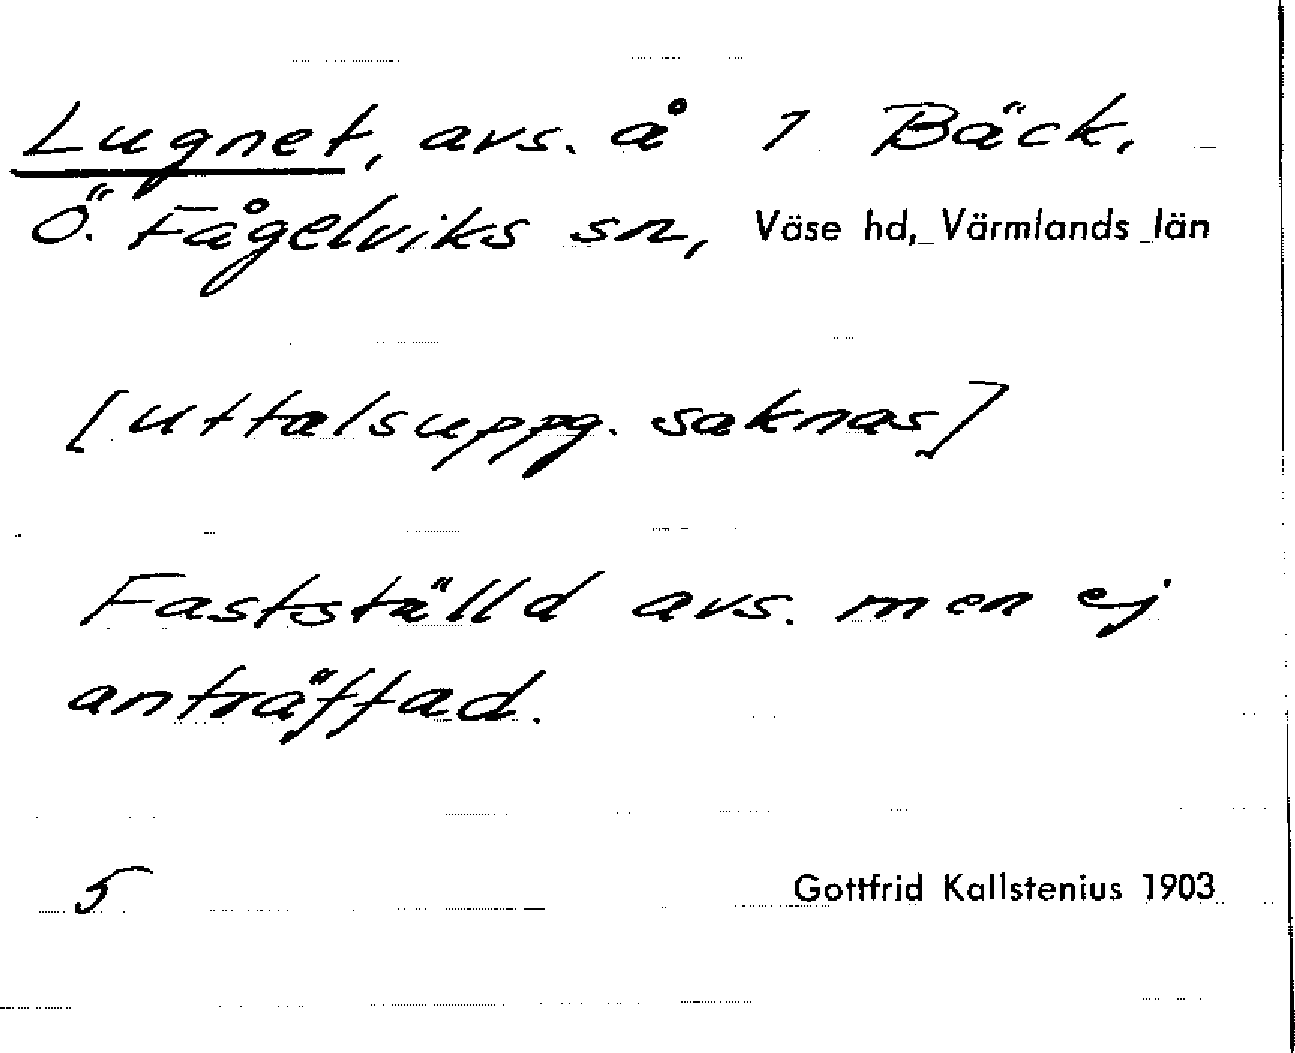 Lugnet, avs. å 1 Bäck,
Ö. Fågelviks sn, Väse hd, Värmlands län
[uttalsuppg. saknas]
Fastställd avs. men ej
anträffad.
5 Gottfrid Kallstenius 1903